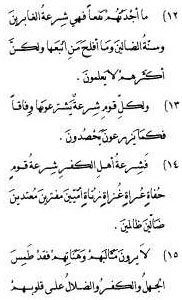 ١٢) مَا أَجْدَتْهُمْ نَفْعاً فَهِيَ شِرْعَةُ الْغَابِرِينَ
وَسُنَّةُ الضَّالِّينَ وَمَا أَفْلَحَ مَنِ اتَّبَعَهَا وَلَكِنَّ
أَكْثَرَهُمْ لاَ يَعْلَمُونَ.
١٣) وَلِكُلِّ قَوْمٍ شِرْعَةٌ يَشْتَرِعُونَهَا وِفَاقاً
فَكَمَا يَزْرَعُونَ يَحْصُدُونَ.
١٤) فَشِرْعَةُ أَهْلِ الْكُفْرِ شِرْعَةُ قَوْمٍ
حُفَاةٍ عُرَاةٍ غُزَاةٍ زُنَاةٍ أُمِّيِّينَ مُفْتَرِينَ مُعْتَدِينَ
ضَالِّينَ ظَالِمِينَ.
١٥) لاَ يَرَوْنَ مَثَالِبَهُمْ وَهَنَاتِهِمْ فَقَدْ طَمَسَ
الْجَهْلُ وَالْكُفْرُ وَالضَّلاَلُ عَلَى قُلُوبِهِمْ